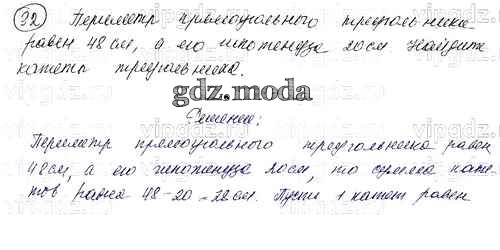 32 Периметр прямоугольного треугольника
равен 48 см, а его гипотенуза 20 см. Найдите
катеты треугольника.
gdz.moda
Решение:
Периметр прямоугольного треугольника равен
48 см, а его гипотенуза 20 см, то сумма кате-
тов равна 48-20=28 см. Пусть 1 катет равен